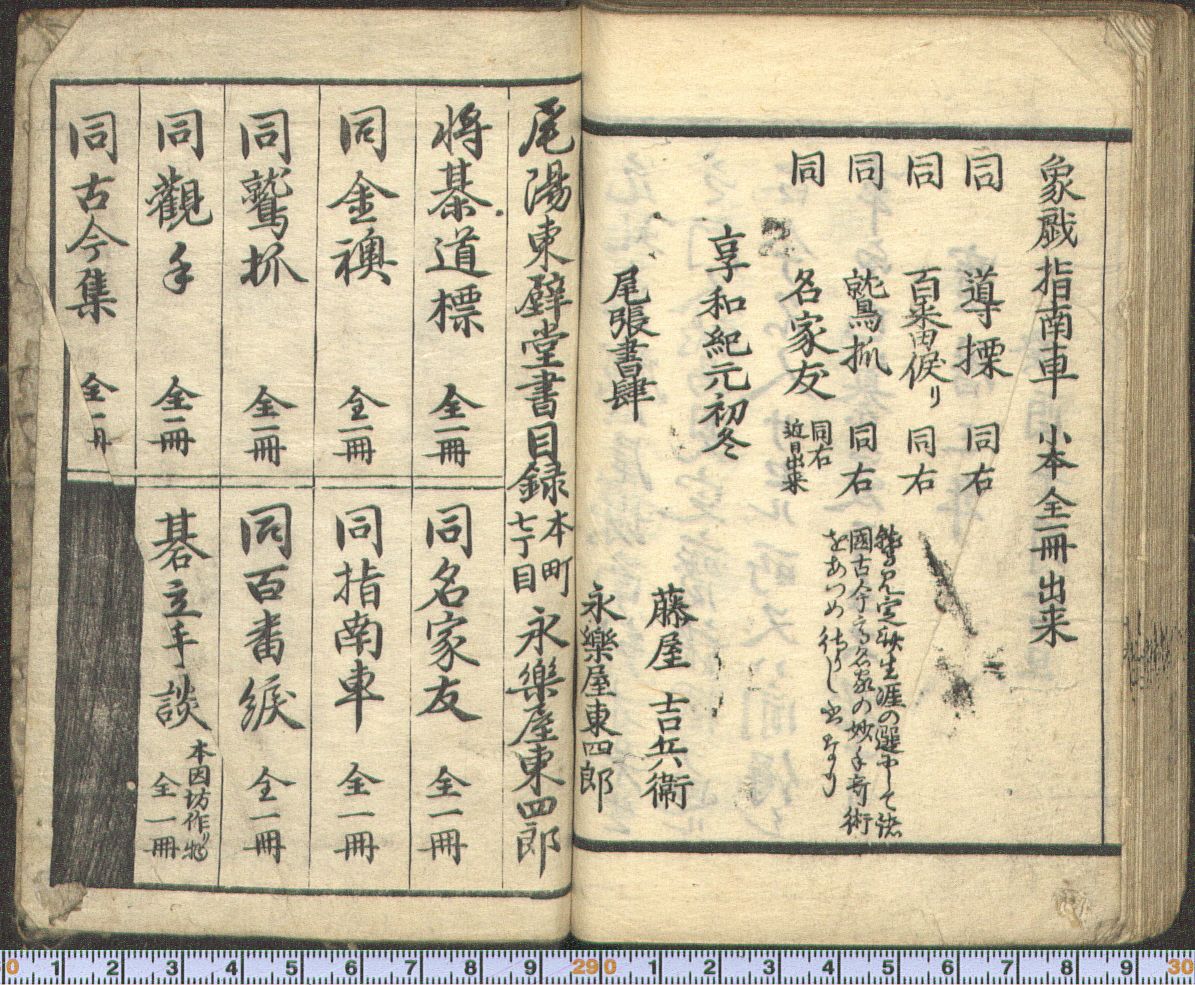 象戯指南車 小本全一冊出来
同 導標 同右
同 百番出俣リ 同右
同 鷲抓 同右
同 名家友 同右 近日出来
國古今高名家の妙手奇術
をあつめ
享和紀元初冬
尾張書肆
藤屋吉兵衛
永樂屋東四郎
尾陽東壁堂書目録 本町七丁目 永樂屋東四郎
将棊道標 全一冊
同名家友 全一冊
同金襖 全一冊
同指南車 全一冊
同鷲抓 全一冊
同百番綟 全一冊
同觀手 全一冊
碁立手談 本因坊作リ物 全一冊
同古今集 全一冊
0 1 2 3 4 5 6 7 8 9 29 0 1 2 3 4 5 6 7 8 9 30